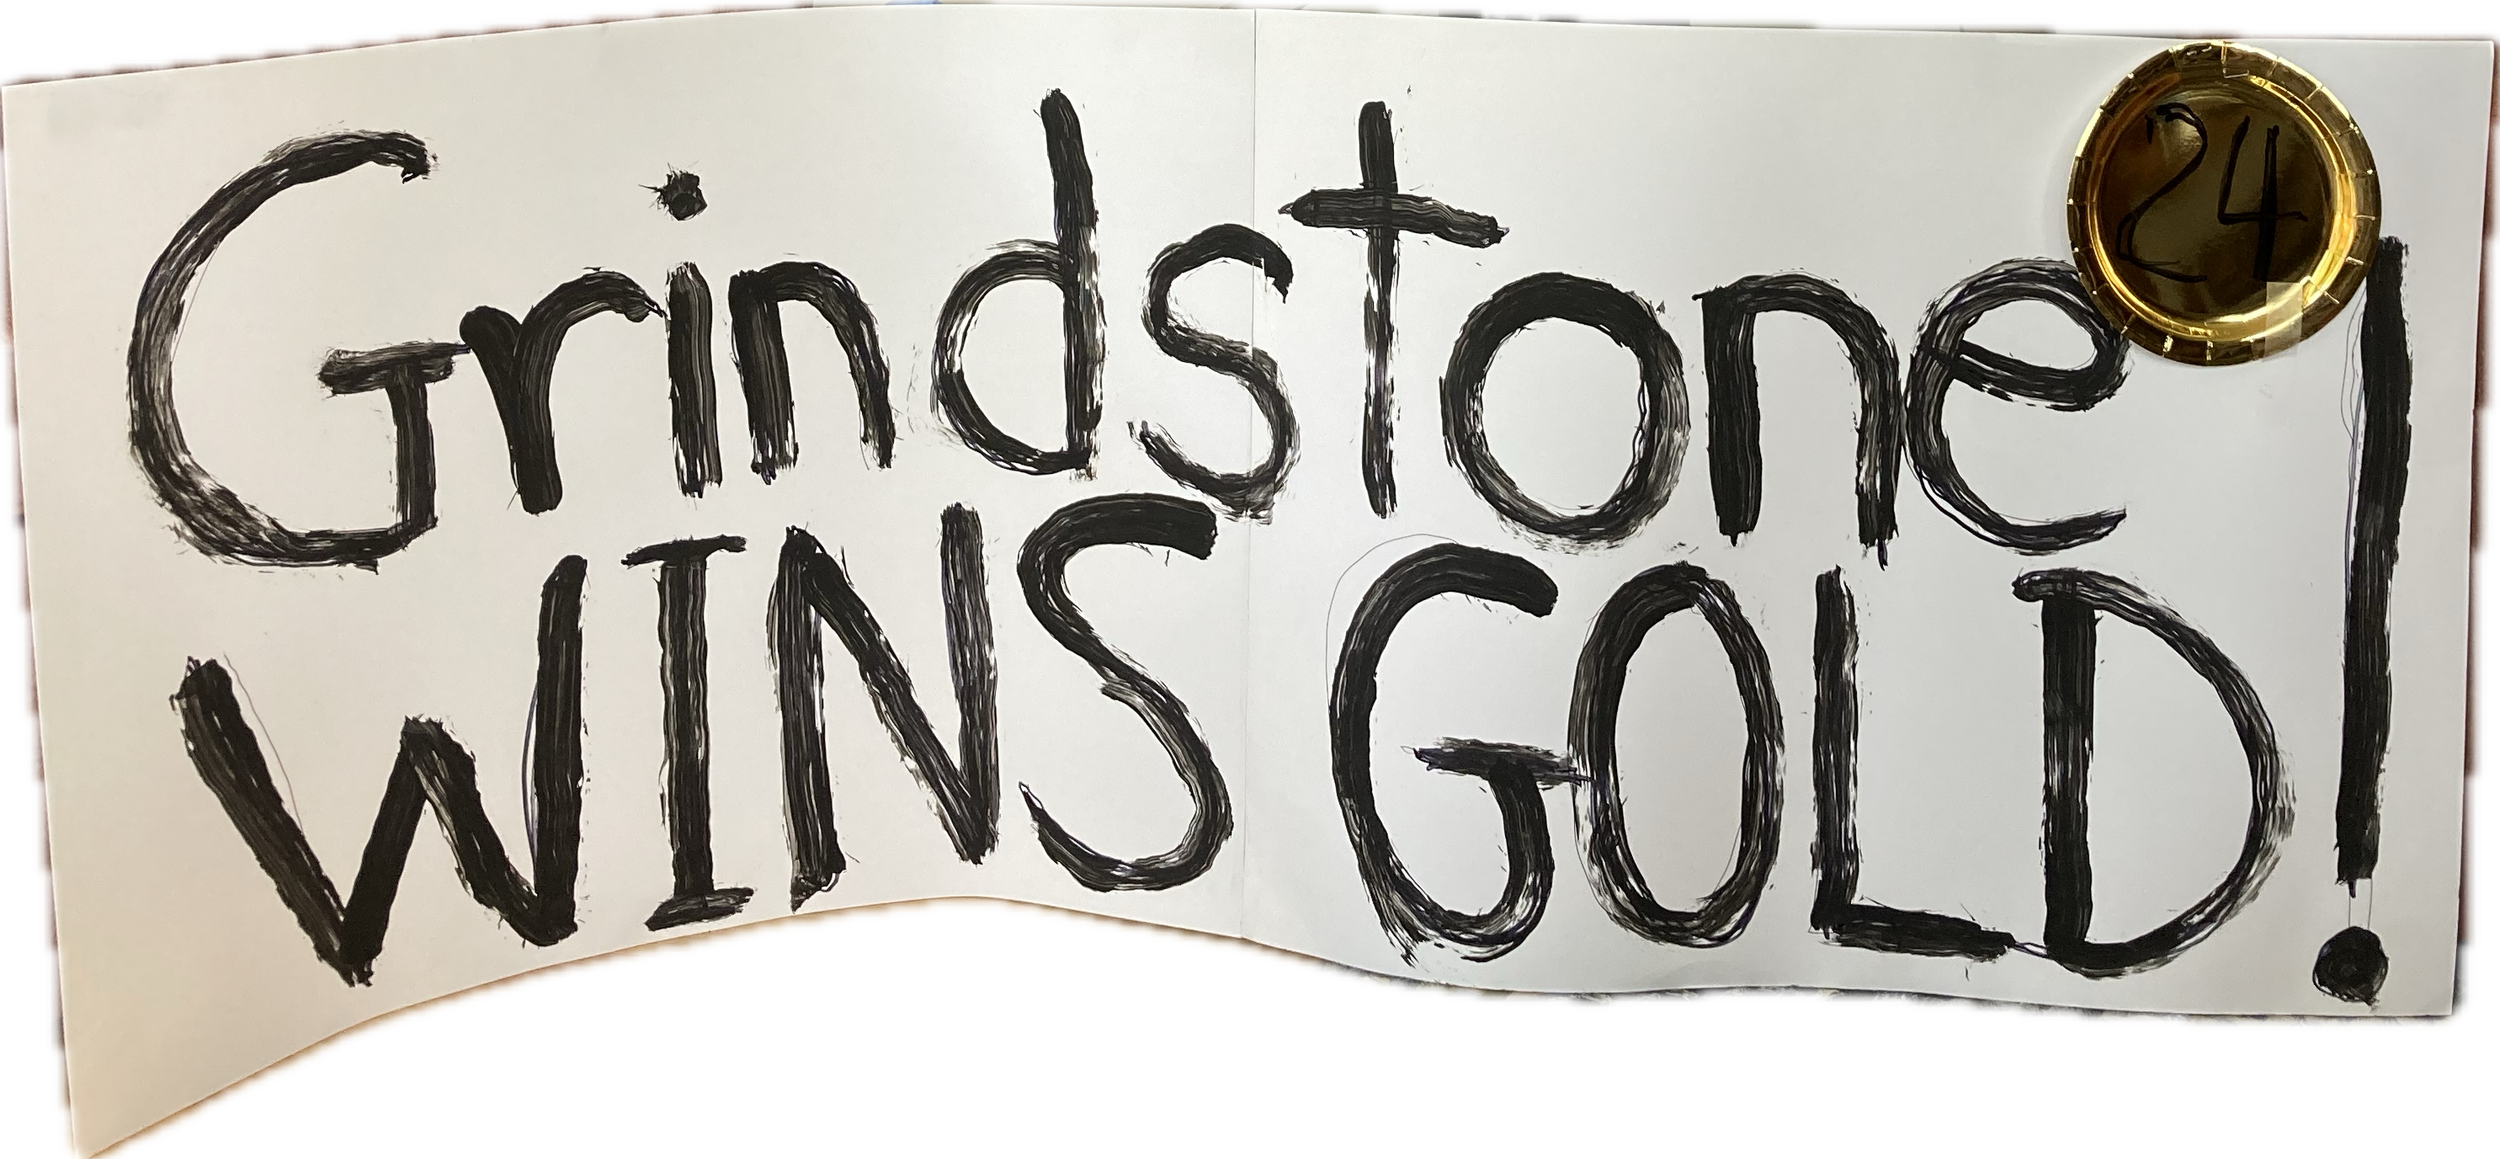 Grindstone
WINS GOLD!
24